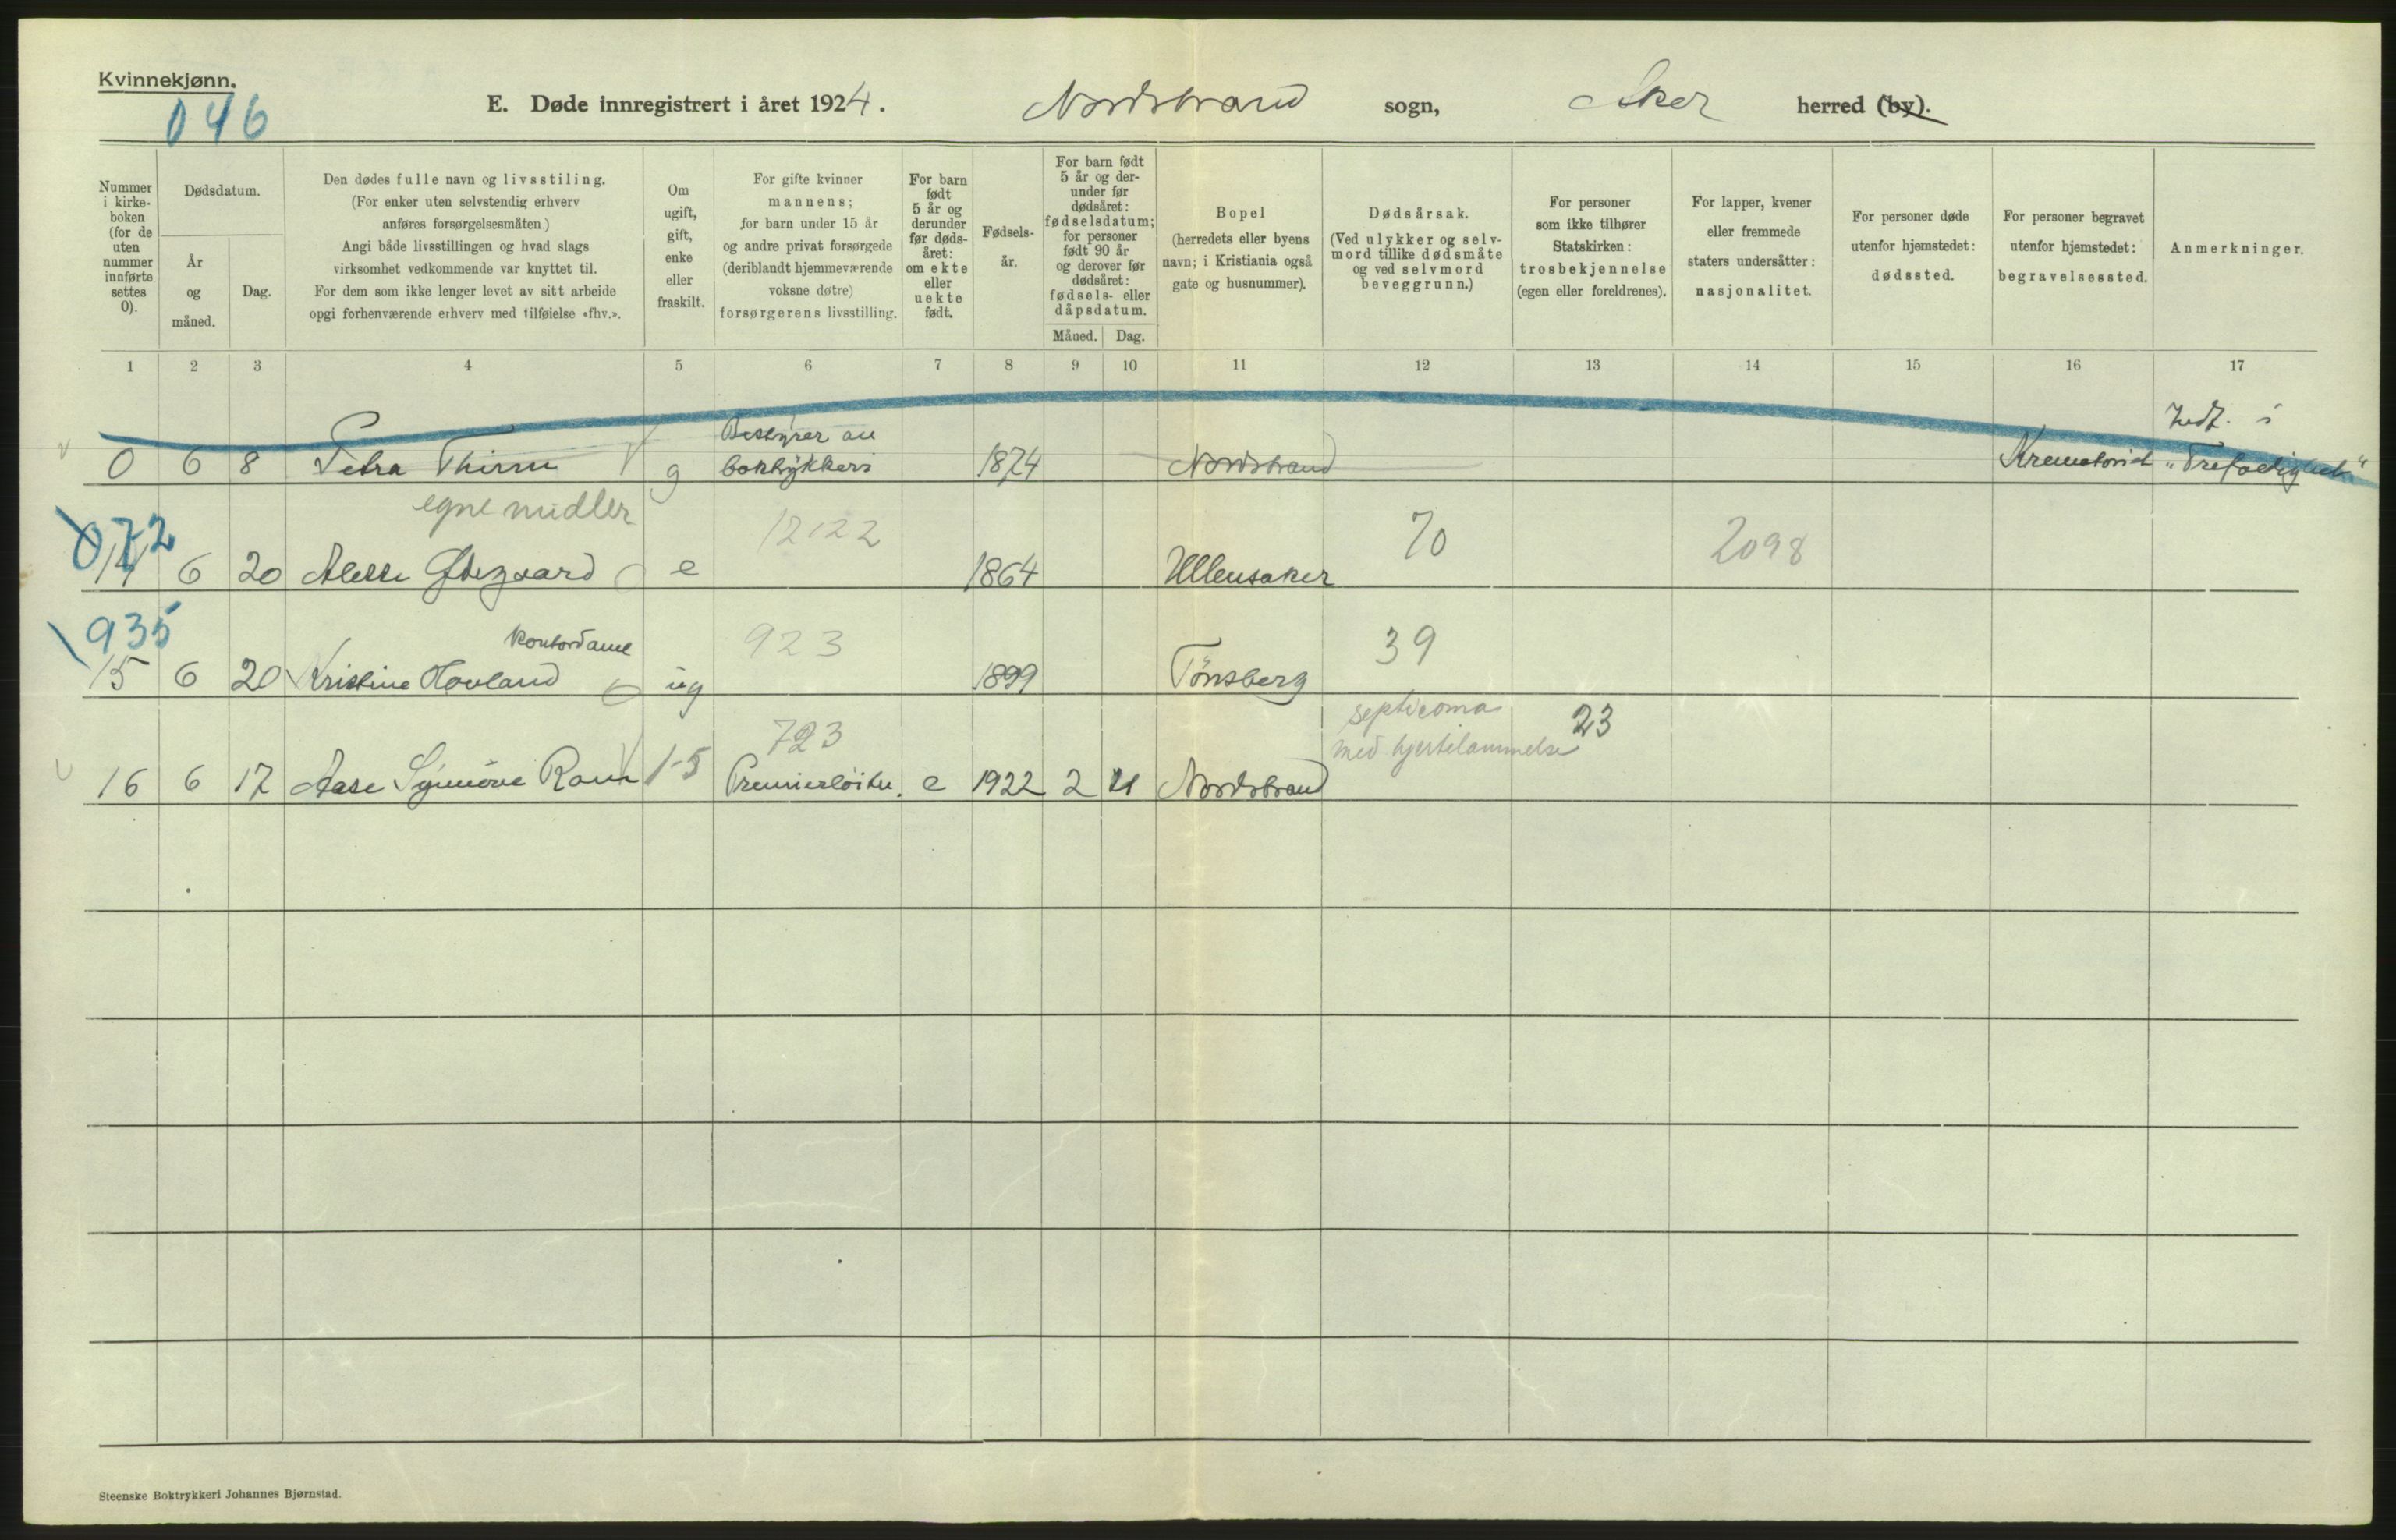 Kvinnekjønn.
046
E. Døde innregistrert i året 1924. Nordstrand sogn, Aker herred (by).
Nummer i kirke- boken (for de uten nummer innførte settes 0).
Dødsdatum.
År og måned.
Dag.
Den dødes fulle navn og livsstiling.
(For enker uten selvstendig erhverv
anføres forsørgelsesmåten.)
Angi både livsstillingen og hvad slags
virksomhet vedkommende var knyttet til.
For dem som ikke lenger levet av sitt arbeide
opgi forhenværende erhverv med tilføielse «fhv.».
Om ugift, gift, enke eller fraskilt.
For gifte kvinner
mannens;
for barn under 15 år
og andre privat forsørgede
(deriblandt hjemmeværende
voksne døtre)
forsørgerens livsstilling.
For barn født 5 år og derunder før døds- året: om ekte eller uekte født.
Fødsels- år.
For barn født
5 år og der-
under før
dødsåret:
fødselsdatum;
for personer
født 90 år
og derover før
dødsåret:
fødsels- eller
dåpsdatum.
Måned. Dag.
Bopel
(herredets eller byens
navn; i Kristiania også
gate og husnummer).
Dødsårsak.
(Ved ulykker og selv-
mord tillike dødsmåte
og ved selvmord
beveggrunn.)
For personer
som ikke tilhører
Statskirken:
trosbekjennelse
(egen eller foreldrenes).
For lapper, kvener
eller fremmede
staters undersåtter:
nasjonalitet.
For personer døde
utenfor hjemstedet:
dødssted.
For personer begravet
utenfor hjemstedet:
begravelsessted.
Anmerkninger.
1 2 3 4 5 6 7 8 9 10 11 12 13 14 15 16 17
Bestyrer av
i
0 6 8 Petra g boktrykkeri 1874 Nordstrand Krematoriet "Trefoldighet"
egne midler 12122 70 2098
072
14 6 20 Ødegaard e 1864 Ullensaker
935
Kontordame 923 39
15 6 20 Kristine Hovland ug 1899 Tönsberg
723 septicoma 23
med hjertelammelse
16 6 17 Aase Synnöve 1-5 Premierløitn. e 1922 2 21 Nordstrand
Steenske Boktrykkeri Johannes Bjørnstad.